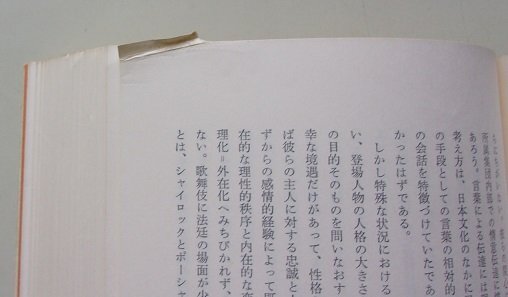 所属集団内部での情意伝達に
あろう。言葉による伝達には
考え方は、日本文化のなかに
の手段としての言葉の相対的
の会話を特徴づけていたであ
かったはずである。
しかし特殊な状況における
い、登場人物の人格の大きさ
の目的そのものを問いなおす
幸な境遇だけがあって、性格
ば彼らの主人に対する忠誠と
ずからの感情的経験によって
在的な理性的秩序と内在的な
理化=外在化へみちびかれず、
ない。歌舞伎に法廷の場面が少
とは、シャイロックとポーシャ